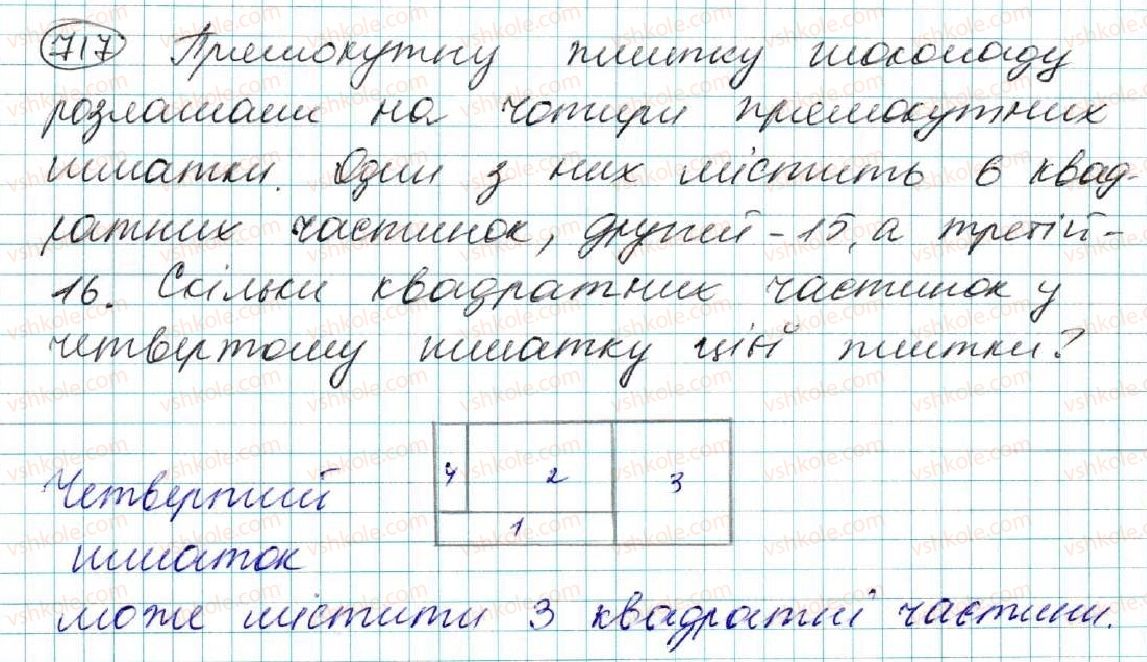 717 Прямокутну плитку шоколаду
розламали на чотири прямокутних
шматки. Один з них містить 6 квад-
ратних частинок, другий - 15, а третій -
16. Скільки квадратних частинок у
четвертому шматку цієї плитки?
4 2 3
1
Четвертий
шматок
може містити 3 квадратні частини.
vshkole.com